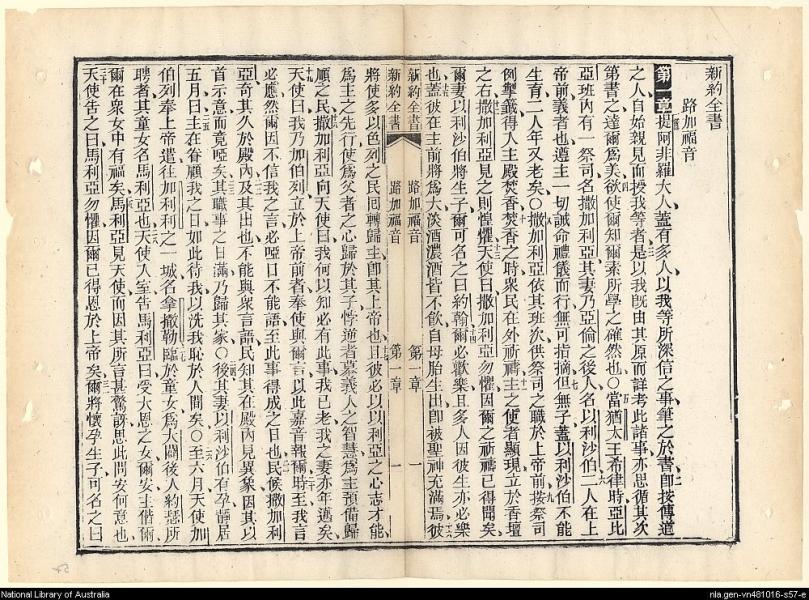 新約全書
路加福音
第一章提阿非羅大人蓋有多人以我等所深信之事筆之於書卽按傳道
之人自始親見而授我等者是以我旣由其原而詳考此諸事亦思循其次
第書之達爾爲美欲使爾知爾素所學之確然也○當猶太王希律時亞比
亞班內有一祭司名撒加利亞其妻乃亞倫之後人名以利沙伯二人在上
帝前義者也遵主一切誡命禮儀而行無可指摘但無子蓋以利沙伯不能
生育二人年又老矣○撒加利亞依其班次供祭司之職於上帝前按祭司
例掣籤得入主殿焚香焚香之時衆民在外祈禱主之使者顯現立於香壇
之右撒加利亞見之則惶懼天使曰撒加利亞勿懼因爾之祈禱已得聞矣
爾妻以利沙伯將生子爾可名之曰約翰爾必歡樂且多人因彼生亦必樂
也蓋彼在主前將爲大淡酒濃酒皆不飲自母胎生出卽被聖神充滿焉彼
新約全書 路加福音 第一章 一
新約全書 路加福音 第一章 一
將使多以色列之民回轉歸主卽其上帝也且彼必以以利亞之心志才能
爲主之先行使爲父者之心歸於其子悖逆者慕義人之智慧爲主預備歸
順之民撒加利亞向天使曰我何以知必有此事我已老我之妻亦年邁矣
天使曰我乃加伯列立於上帝前者奉使與爾言以此嘉音報爾時至我言
必應然爾因不信我之言必啞口不能語至此事得成之日也民候撒加利
亞奇其久於殿內及其出也不能與衆言語民知其在殿內見異象因其以
首示意而竟啞矣其職事之日滿乃歸其家○後其妻以利沙伯有孕靜居
五月曰主在眷顧我之日如此待我以洗我恥於人間矣○至六月天使加
伯列奉上帝遣往加利利之一城名拿撒勒臨於童女爲大闢後人約瑟所
聘者其童女名馬利亞也天使入室告馬利亞曰受大恩之女爾安主偕爾
爾在衆女中有福矣馬利亞見天使而因其所言甚驚訝思此問安何意也
天使告之曰馬利亞勿懼因爾已得恩於上帝矣爾將懷孕生子可名之曰
National Library of Australia
nla.gen-vn481016-s57-e